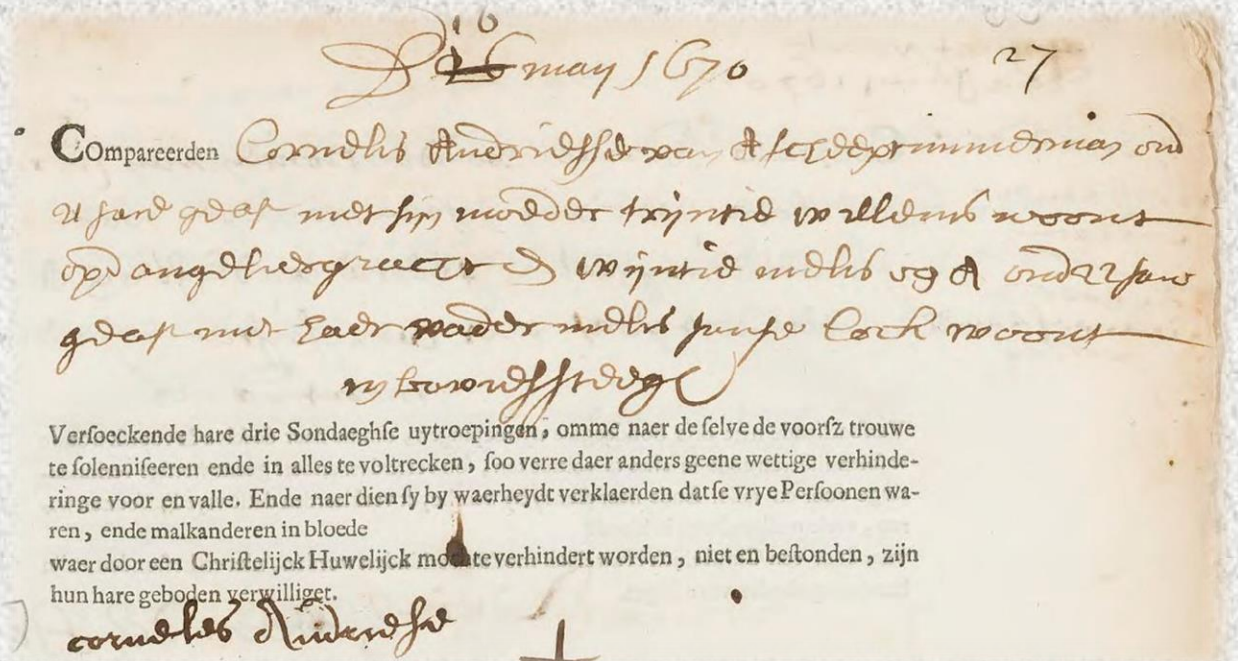 16
D 26 may 1670 27
Compareerden Cornelis Andriesse van A scheeptimmerman oud
21 Jare geas met sijn moeder trijntie willems woont
op angeliersgracht En wijntie melis vg A oud 22 Jare
geas met haer vader melis Janse Cock woont
in
Versoeckende hare drie Sondaeghse uytroepingen, omme naer de selve de voorsz trouwe
te solenniseeren ende in alles te voltrecken, soo verre daer anders geene wettige verhinde-
ringe voor en valle. Ende naer dien sy by waerheydt verklaerden datse vrye Persoonen wa-
ren, ende malkanderen in bloede
waer door een Christelijck Huwelijck mochte verhindert worden, niet en bestonden, zijn
hun hare geboden verwilliget.
corneles Andriese